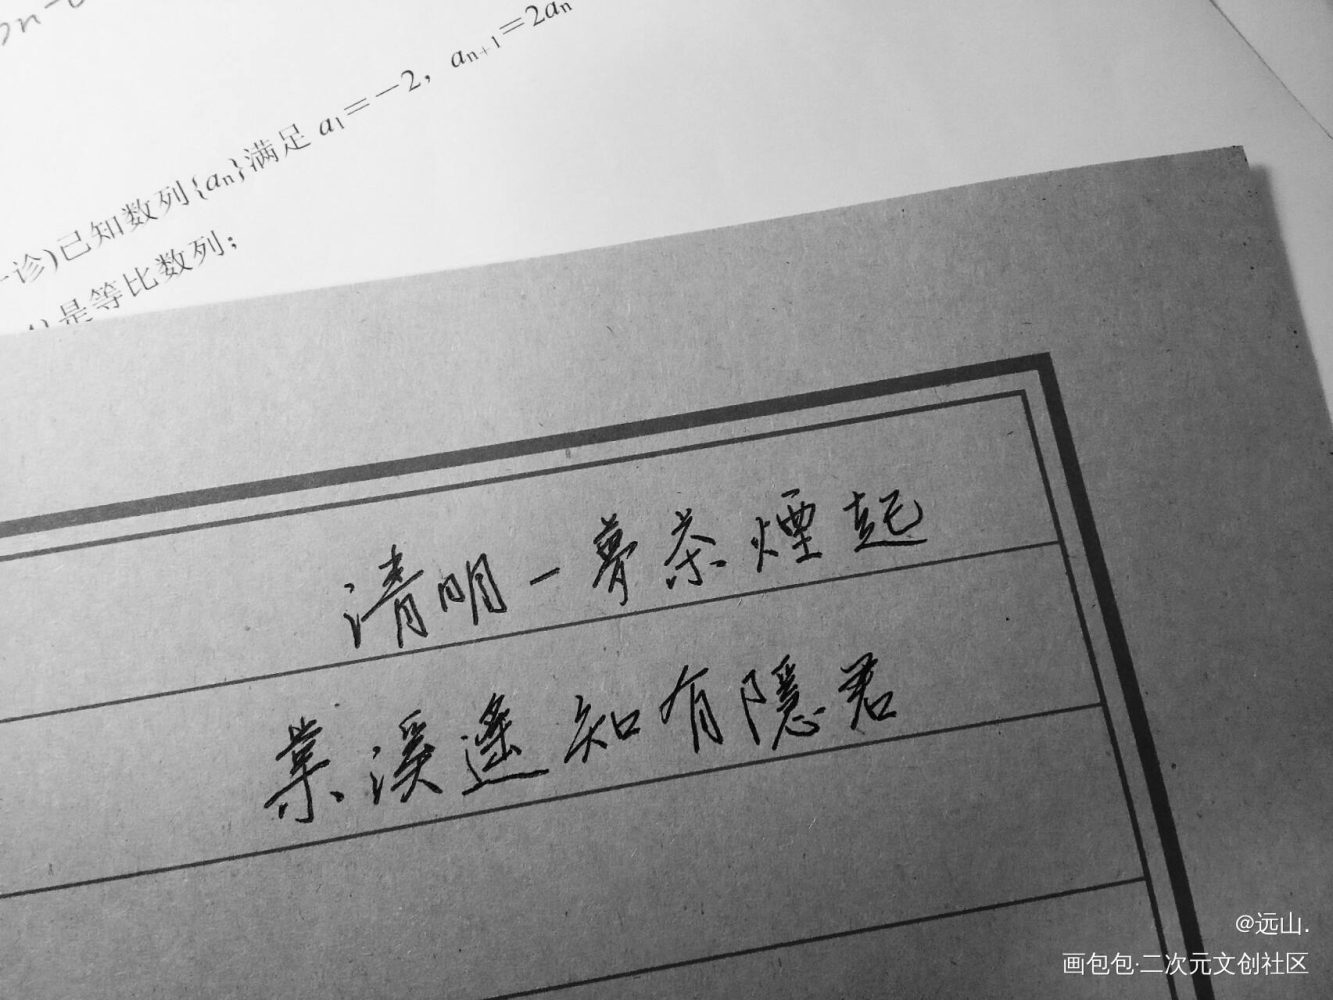 a₁=-2, aₙ₊₁=2aₙ
诊)已知数列{aₙ}满足
是等比数列;
清明一夢茶煙起
葉溪遙知有隱君
@远山.
画包包·二次元文创社区